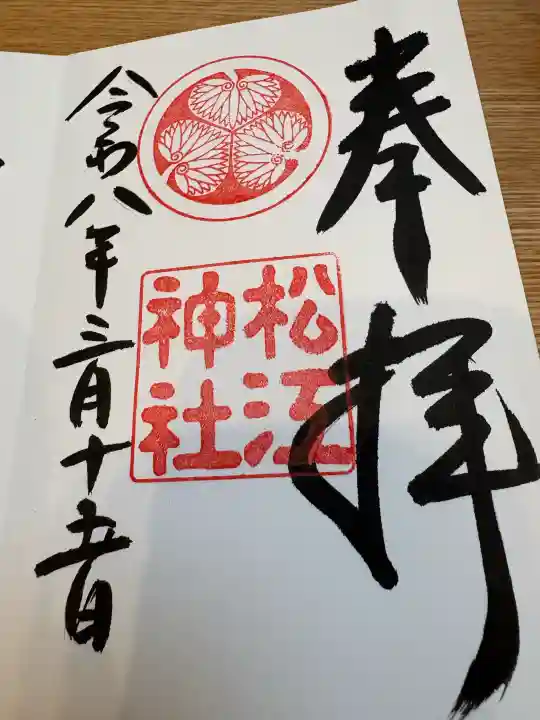 奉拝
松江
神社
令和八年三月十五日